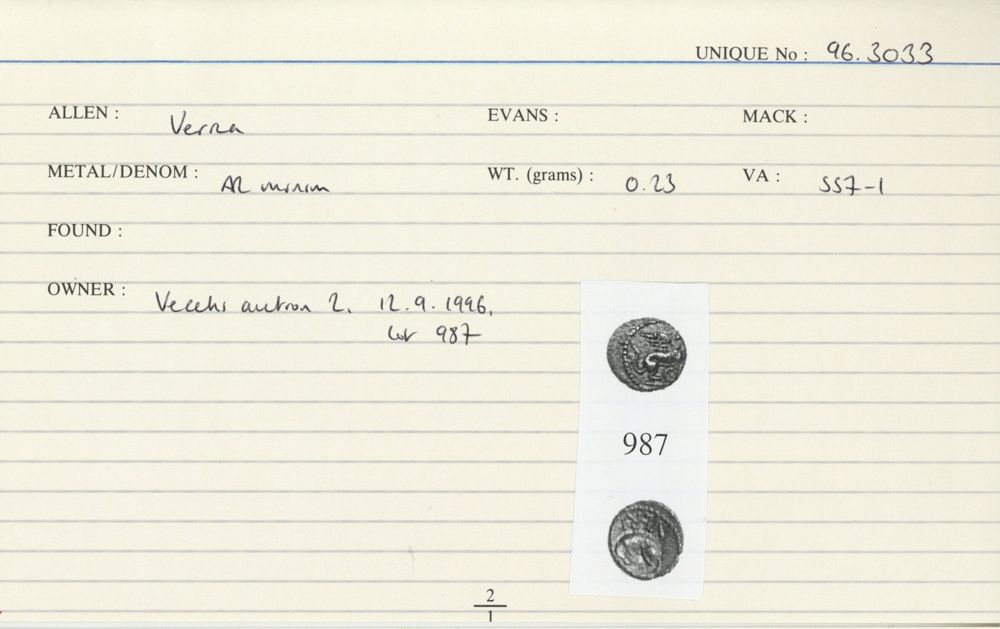 UNIQUE No : 96.3033
ALLEN : Verica EVANS : MACK :
METAL/DENOM : AR minim WT. (grams) : 0.23 VA : 557-1
FOUND :
OWNER : Vecchi auction 2. 12.9.1996,
lot 987
987
2
1